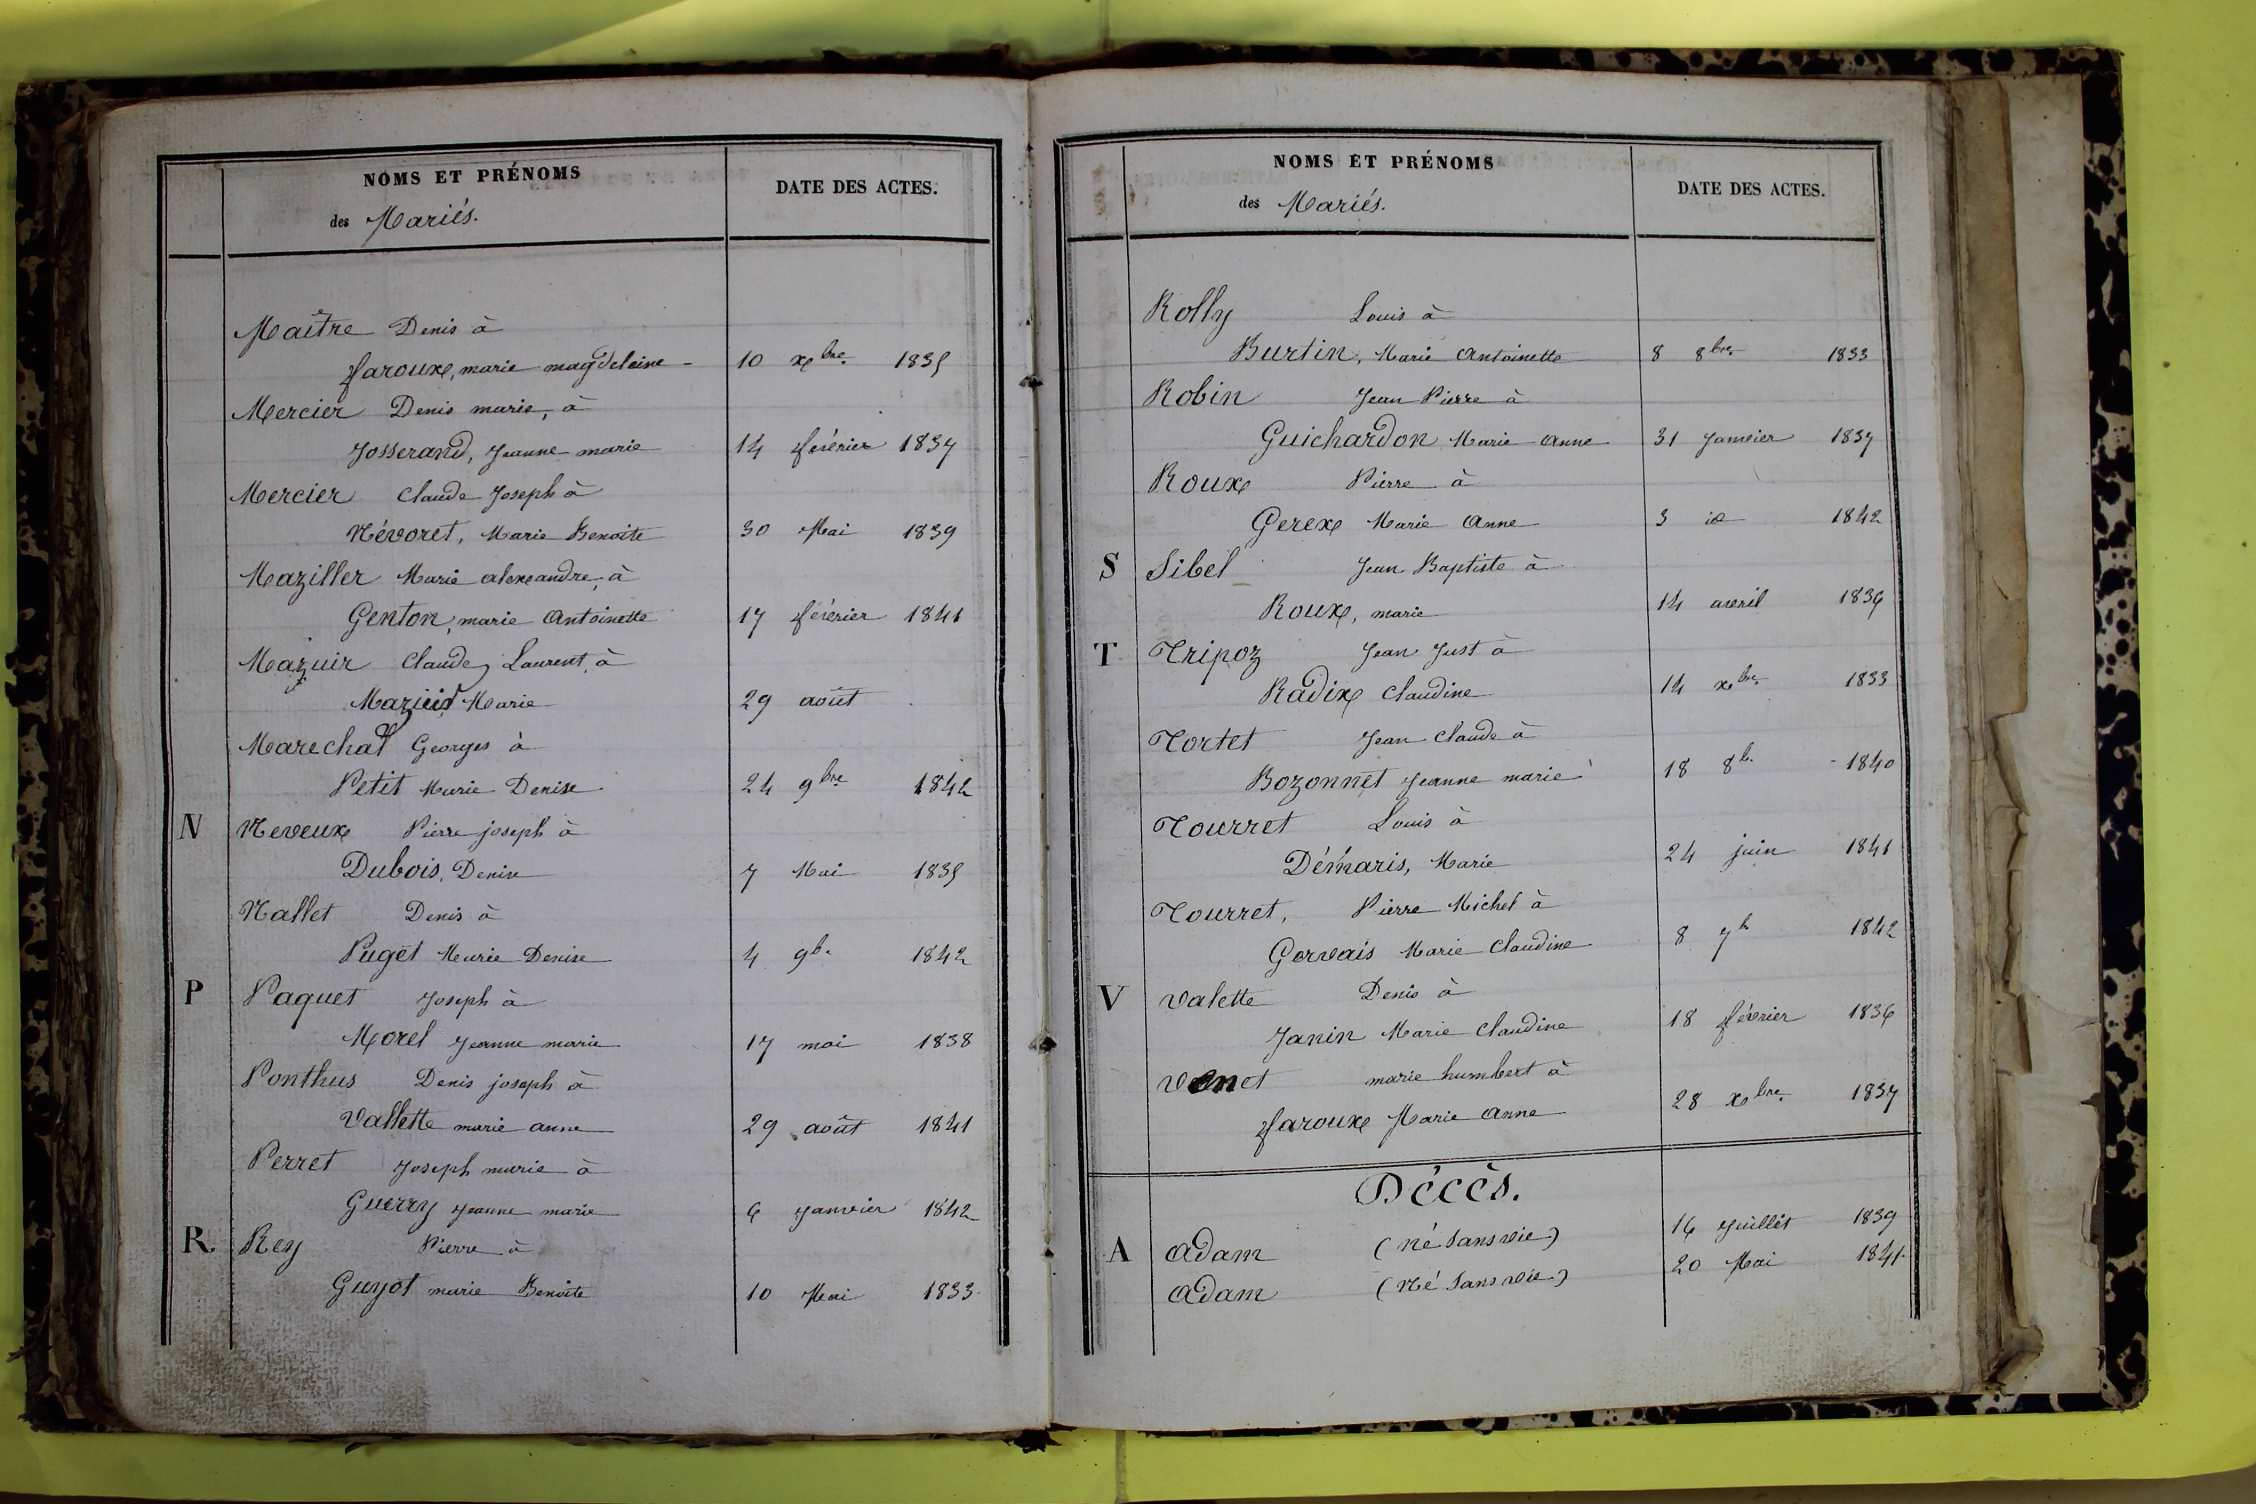 NOMS ET PRÉNOMS
des Mariés.
DATE DES ACTES.
Maître Denis à
faroux, marie magdeleine - 10 xbre. 1835
Mercier Denis marie, à
Josserand, Jeanne marie 14 février 1837
Mercier Claude Joseph à
Névoret, Marie Benoite 30 Mai 1839
Maziller Marie alexandre, à
Genton, marie Antoinette 17 février 1841
Mazuir Claude Laurent, à
Marie 29 août
Marechal Georges à
Petit Marie Denise 24 9bre 1842
N Neveux Pierre joseph à
Dubois, Denise 7 Mai 1835
Nallet Denis à
Puget Marie Denise 4 9b. 1842
P Paquet Joseph à
Morel Jeanne marie 17 mai 1838
Ponthus Denis joseph à
Vallette marie anne 29 août 1841
Perret Joseph marie à
Guerry Jeanne marie 6 Janvier 1842
R. Rey Pierre à
Guyot marie Benoite 10 Mai 1833
NOMS ET PRÉNOMS
des Mariés.
DATE DES ACTES.
Rolly Louis à
Burtin, Marie Antoinette 8 8bre. 1833
Robin Jean Pierre à
Guichardon Marie Anne 31 Janvier 1837
Roux Pierre à
Gerex Marie Anne 3 id 1842
S Sibel Jean Baptiste à
Roux, marie 14 avril 1836
T Tripoz Jean Just à
Radix Claudine 14 xbre. 1833
Tortet Jean Claude à
Bozonnet Jeanne marie 18 8b. 1840
Tourret Louis à
Démaris, Marie 24 juin 1841
Tourret, Pierre Michel à
Gervais Marie Claudine 8 7b 1842
V Valette Denis à
Janin Marie Claudine 18 février 1836
Venet marie humbert à
faroux Marie Anne 28 xbre. 1837
Décès.
A Adam (né sans vie) 16 Juillet 1839
Adam (Né sans vie) 20 Mai 1841